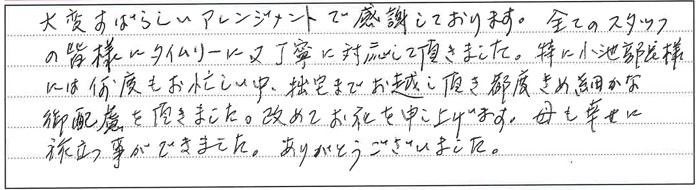 大変すばらしいアレンジメントで感謝しております。全てのスタッフ
の皆様にタイムリーに又丁寧に対応して頂きました。特に小池部長様
には何度もお忙しい中、拙宅までお越し頂き都度きめ細かな
御配慮を頂きました。改めてお礼を申し上げます。母も幸せに
旅立つ事ができました。ありがとうございました。